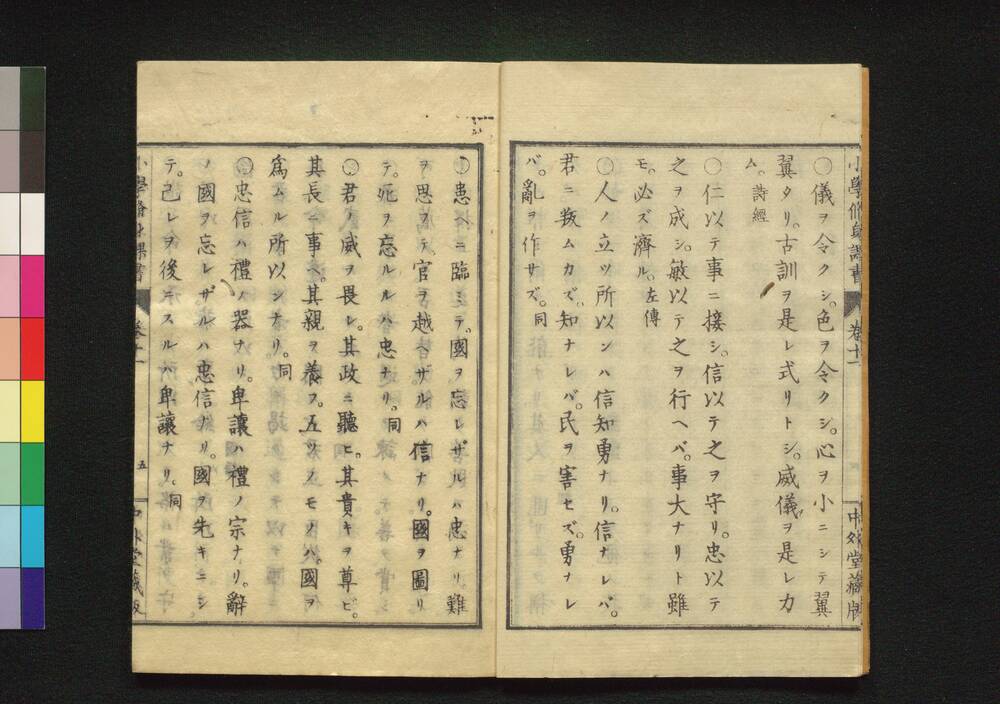 小學修身課書
卷十一
中外堂藏版
〇儀ヲ令クシ。色ヲ令クシ。心ヲ小ニシテ翼
翼タリ。古訓ヲ是レ式リトシ。威儀ヲ是レカ
ム。詩經
〇仁以テ事ニ接シ。信以テ之ヲ守リ。忠以テ
之ヲ成シ。敏以テ之ヲ行ヘバ。事大ナリト雖
モ。必ズ濟ル。左傳
〇人ノ立ツ所以ンハ信知勇ナリ。信ナレバ。
君ニ叛ムカズ。知ナレバ。民ヲ害セズ。勇ナレ
バ。亂ヲ作サズ。同
〇患ヘニ臨ミテ。國ヲ忘レザルハ忠ナリ。難
ヲ思フテ。官ヲ越ザルハ信ナリ。國ヲ圖リ
テ。死ヲ忘ルルハ忠ナリ。同
〇君ノ威ヲ畏レ。其政ニ聽ヒ。其貴キヲ尊ビ。
其長ニ事ヘ。其親ヲ養フ。五ツノモノハ。國ヲ
爲ムル所以ンナリ。同
〇忠信ハ禮ノ器ナリ。卑讓ハ禮ノ宗ナリ。辭
ノ國ヲ忘レザルハ忠信ナリ。國ヲ先キニシ
テ。己レヲ後ニスルハ卑讓ナリ。同
小學修身課書
卷十一
五
中外堂藏版